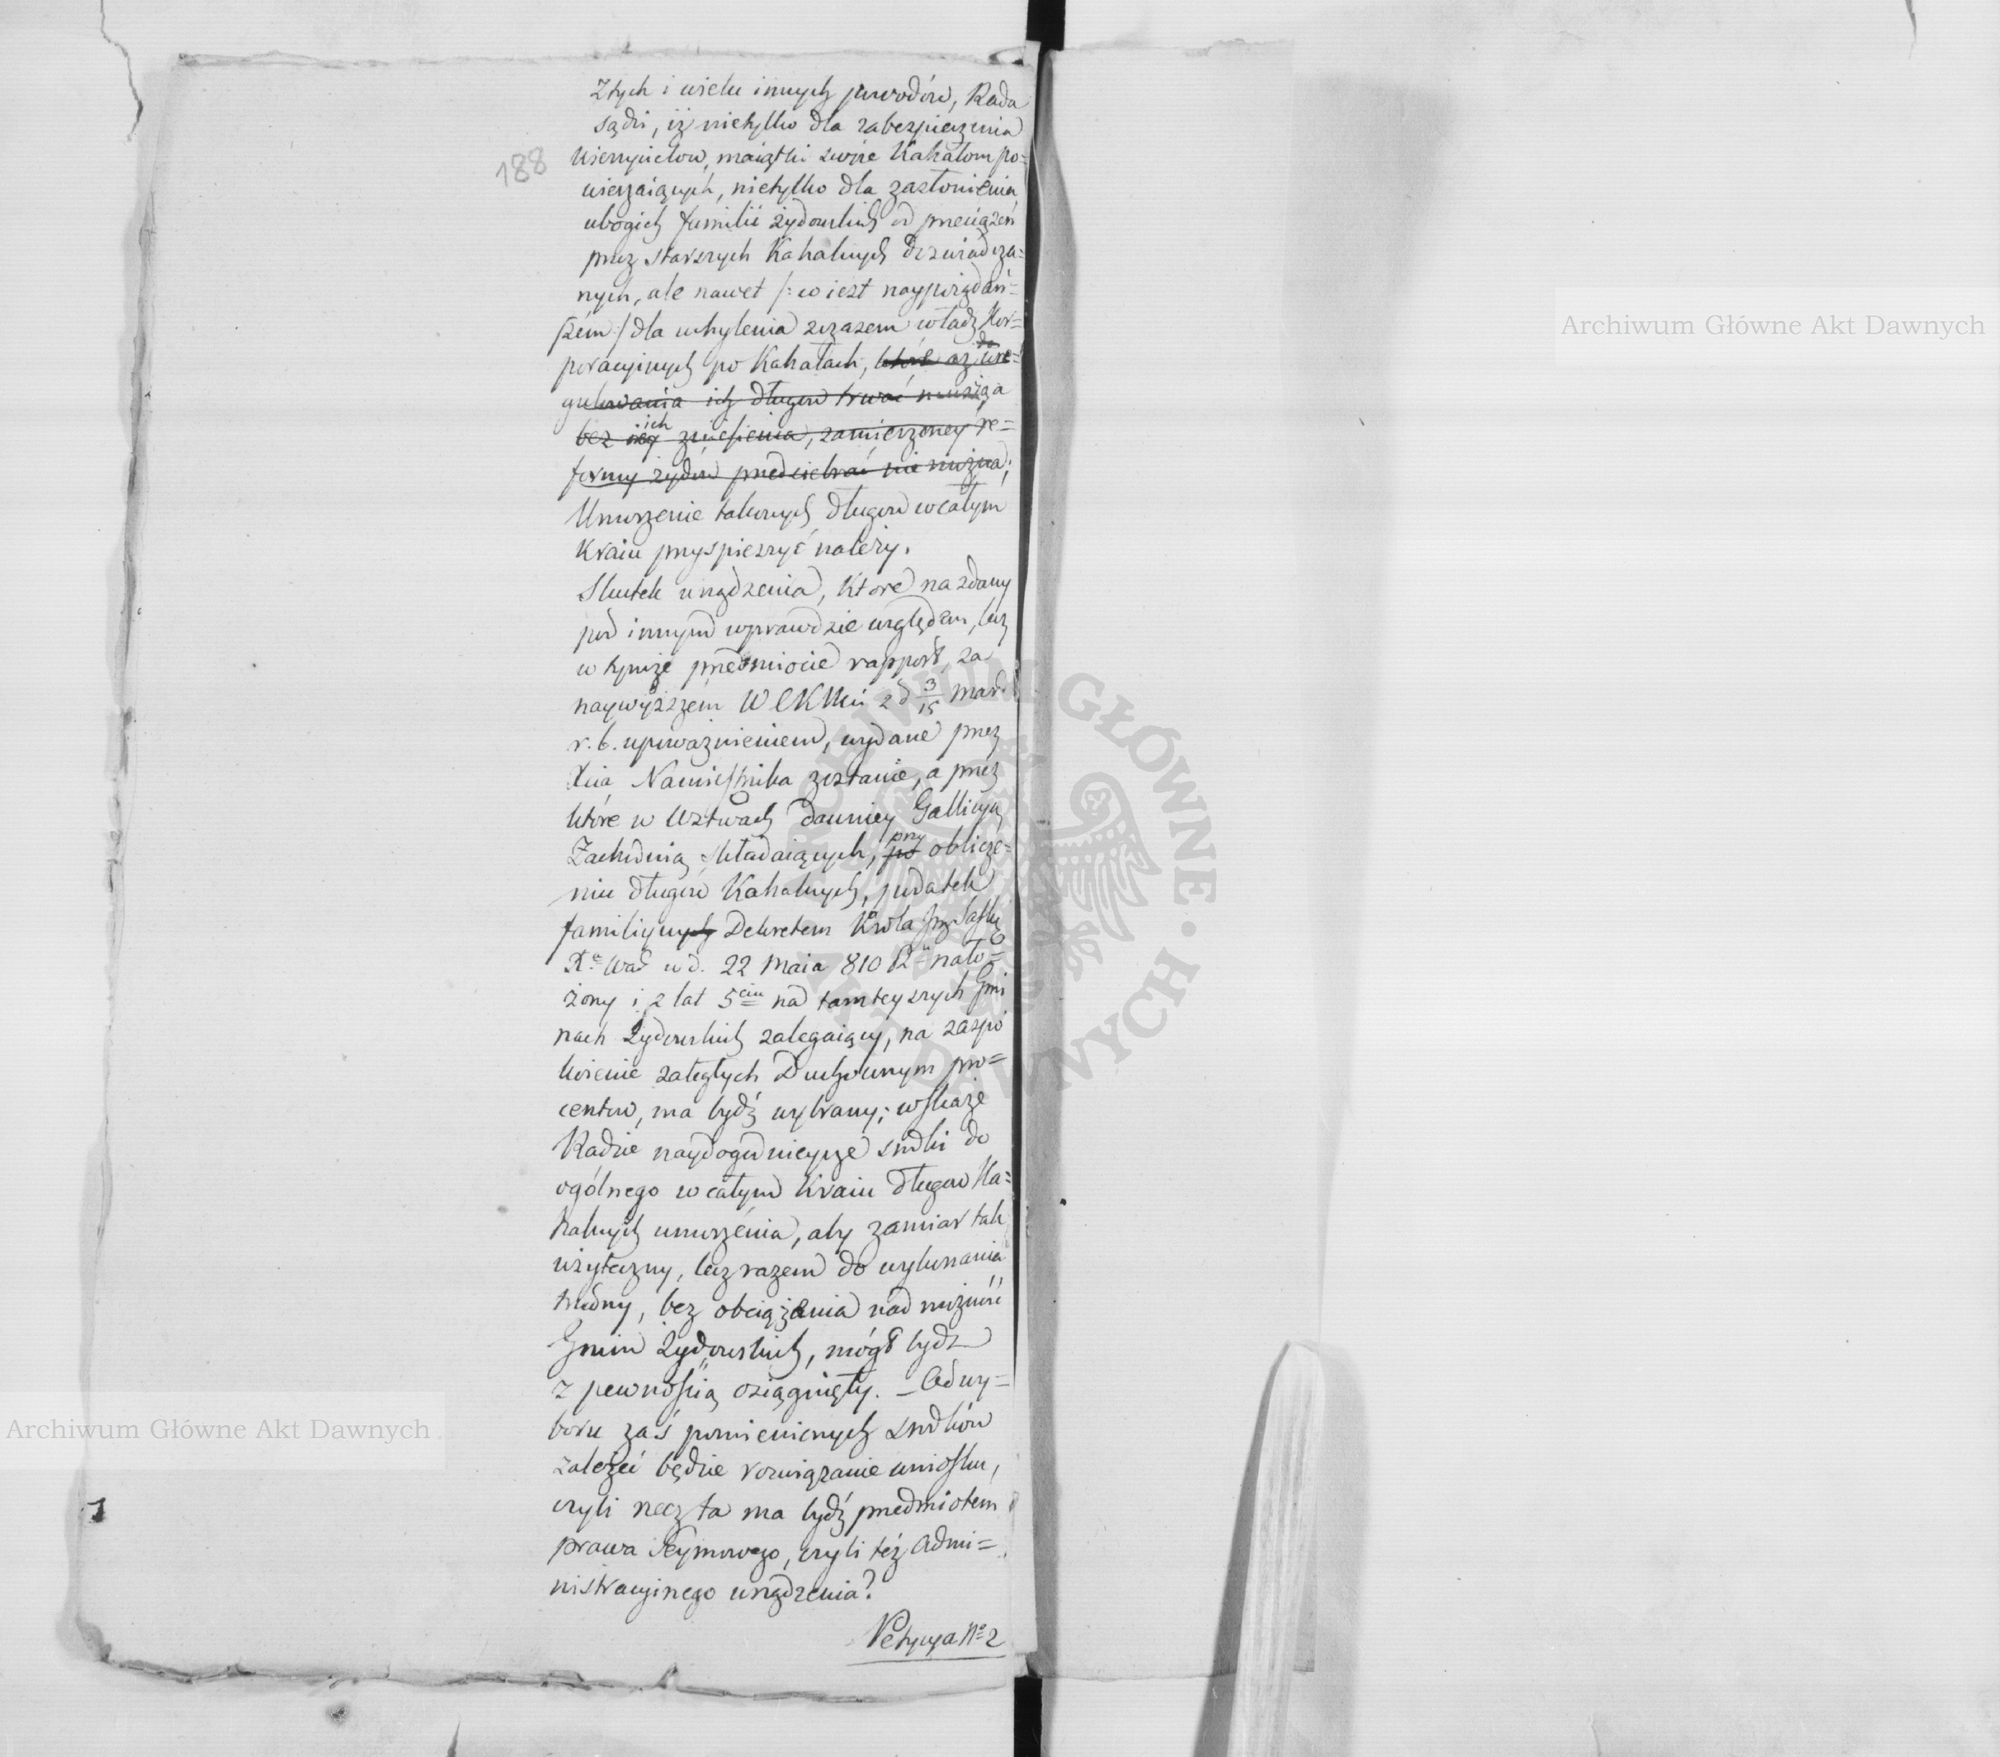 188
Z tych i wielu innych powodów, Rada
sądzi, iż nietylko dla zabezpieczenia
Wierzycielow, maiątki swoie Kahałom po=
wierzaiących, nietylko dla zasłonienia
ubogich familii żydowskich od przeciążeń
przez starszych Kahalnych doświadcza=
nych, ale nawet /: co iest naypożądań=
szém :/ dla uchylenia zczasem władz Kor=
poracyinych po Kahałach, które aż do ure=
gulowania ich długow trwać muszą a
bez ich zniesienia, zamierzoney re=
formy żydów przedsiebrać nie można;
Umorzenie takowych długow w całym
Kraiu przyspieszyć należy.
Skutek urządzenia, które na zdany
pod innym wprawdzie względem, lecz
w tymże przedmiocie rapport, za
naywyższém WCKMci z d 3/15 Mar.
r. b. upoważnieniem, wydane przez
Xcia Namiestnika zostanie, a przez
które w Wztwach dawniey Gallicyą
Zachodnią składaiących, po przy oblicze=
niu długow Kahalnych, podatek
familiyny Dekretem Króla Jmci Saski
Xa War. w d. 22 Maia 810 R. nało=
żony i z lat 5ciu na tamteyszych Gmi
nach Żydowskich zalegaiący, na zaspo
koienie zaległych Duchownym pro=
centow, ma bydź wybrany; wskaże
Radzie naydogodnieysze srodki do
ogólnego w całym Kraiu długow Ka=
halnych umorzénia, aby zamiar tak
użyteczny, lecz razem do wykonania
trudny, bez obciążenia nad możność
Gmin Żydowskich, mógł bydz
z pewnością osiągnięty. – Od wy=
boru zaś pomienionych srodków
zależeć będzie rozwiązanie wniosku,
czyli rzecz ta ma bydź przedmiotem
prawa Seymowego, czyli téż Admi=
nistracyinego urządzenia?
Petycya No 2
Archiwum Główne Akt Dawnych
Archiwum Główne Akt Dawnych
ARCHIWUM GŁÓWNE AKT DAWNYCH